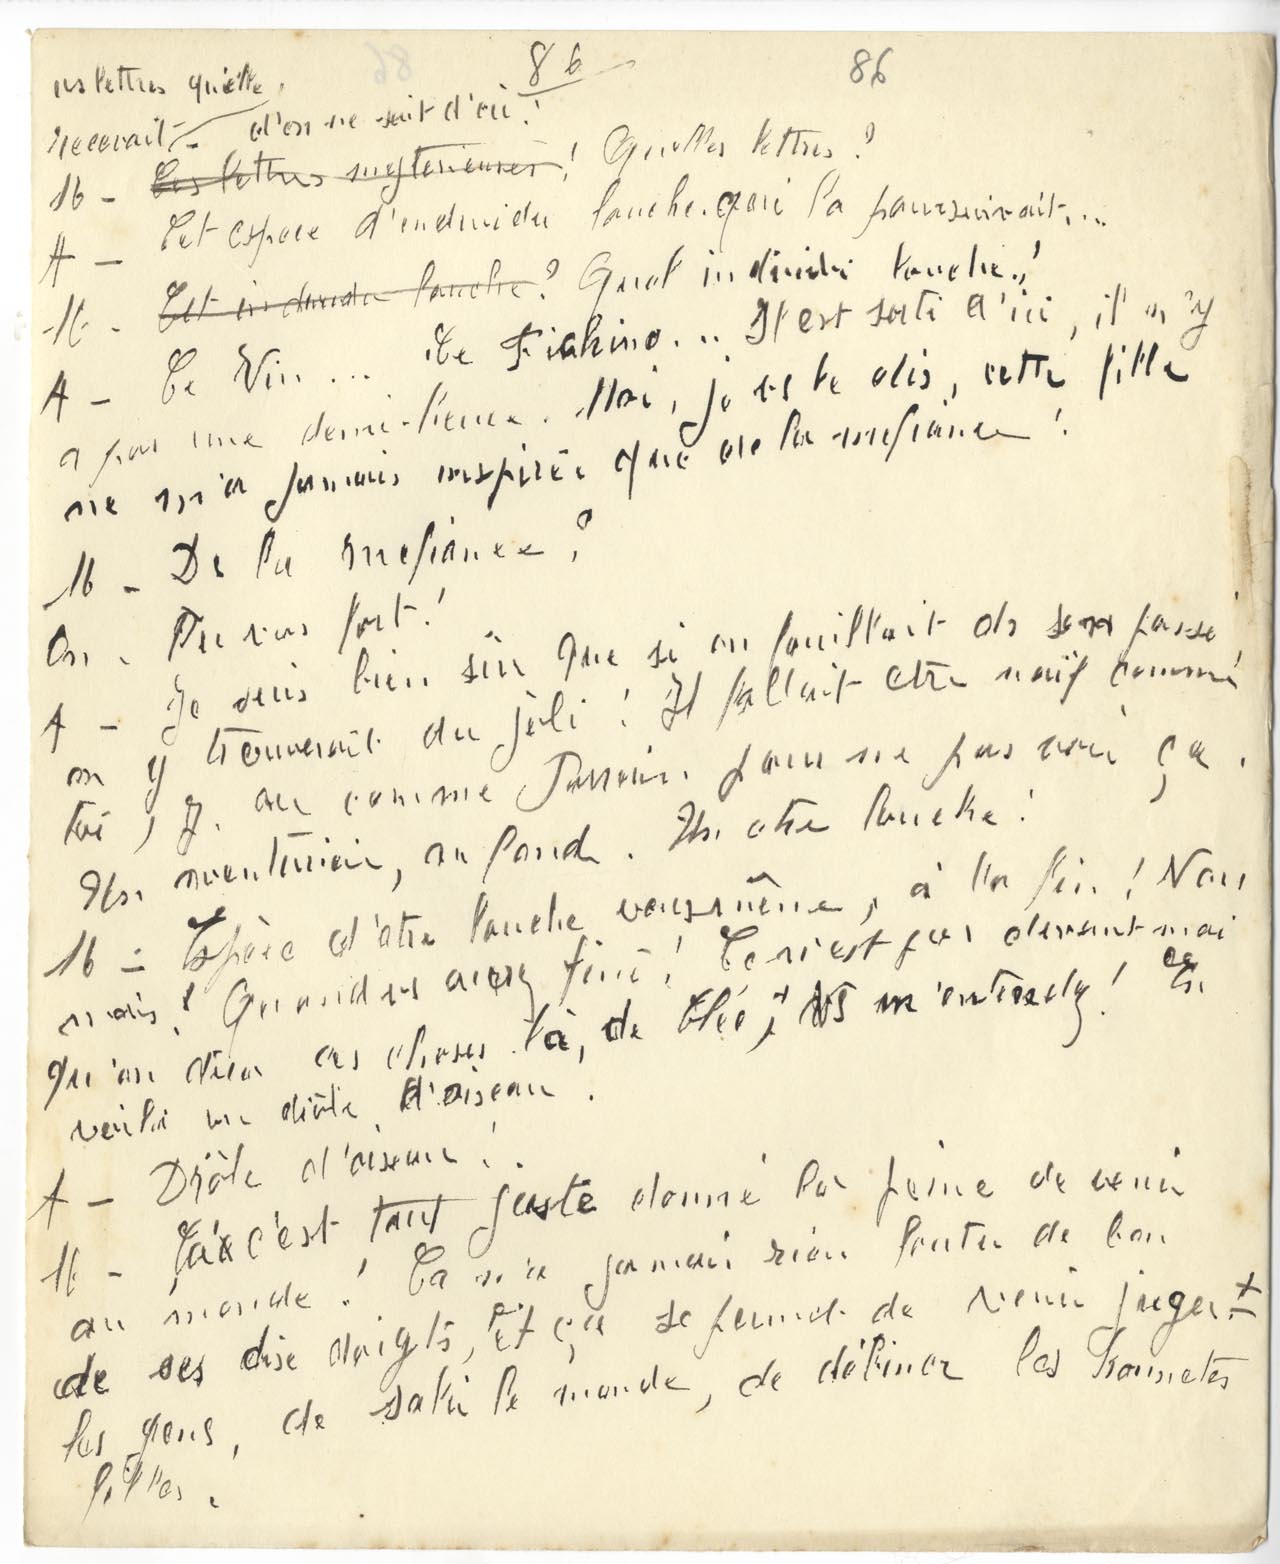 86 86
ces lettres qu'elle
recevait – d'on ne sait d'où !
M – Ces lettres mystérieuses ! Quelles lettres ?
A – Cet espèce d'individu louche qui la poursuivait...
M – Cet individu louche ? Quel individu louche !
A – Ce Vin... Ce Fiakino... Il est sorti d'ici, il n'y
a pas une demi-heure. Moi, je vs le dis, cette fille
ne m'a jamais inspiré que de la méfiance !
M – De la méfiance ?
On. Tu vas fort !
A – Je suis bien sûr que si on fouillait ds son passé,
on y trouverait du joli ! Il fallait être naïf comme
toi, J. ou comme pour ne pas voir ça.
Un aventurier, au fond. Un être louche !
M – Espèce d'être louche vous-même, à la fin ! Non
mais ! Quand vs aurez fini ! Ce n'est pas devant moi
qu'on dira ces choses là, de Cléo, vs m'entendez ! En
voilà un drôle d'oiseau.
A – Drôle d'oiseau !
M – Ça c'est tout juste donné la peine de venir
au monde ! Ça n'a jamais rien foutu de bon
de ses dix doigts, et ça se permet de venir juger
les gens, de salir le monde, de débiner les honnêtes
filles.